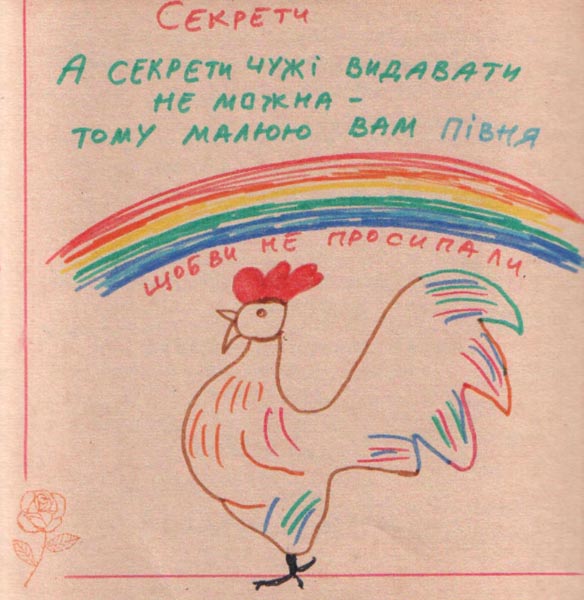 Секрети
А СЕКРЕТИ ЧУЖІ ВИДАВАТИ
НЕ МОЖНА -
ТОМУ МАЛЮЮ ВАМ ПІВНЯ
ЩОБ ВИ НЕ ПРОСИПАЛИ.